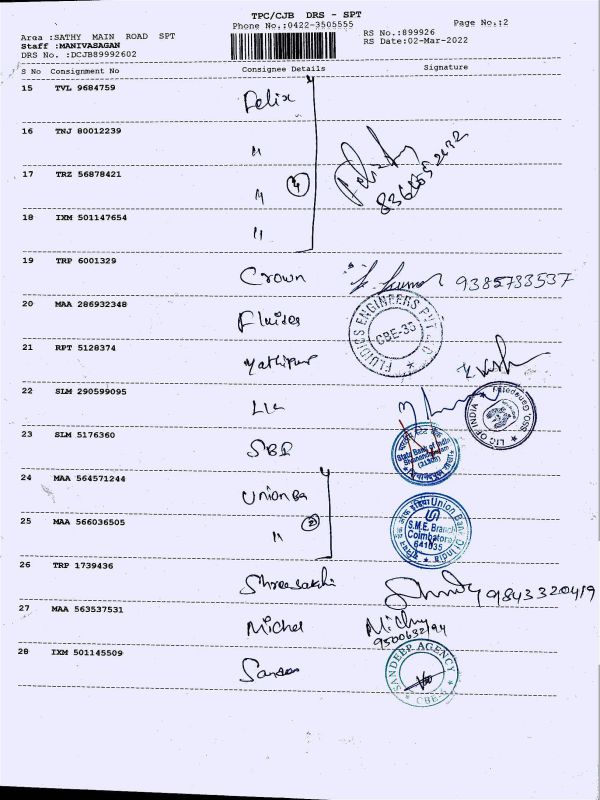 TPC/CJB DRS - SPT
Phone No.:0422-3505555
Page No.:2
Area :SATHY MAIN ROAD SPT
Staff :MANIVASAGAN
DRS No. :DCJB89992602
RS No.:899926
RS Date:02-Mar-2022
S No Consignment No Consignee Details Signature
15 TVL 9684759 Felix
16 TNJ 80012239 "
17 TRZ 56878421 " 4
18 IXM 501147654 "
19 TRP 6001329 Crown 9385783537
20 MAA 286932348 Fluides
FLUIDICS ENGINEERS PVT LTD
CBE-35
21 RPT 5128374 Yathipur
22 SLM 290599095 LIC
LIC OF INDIA
SSO, Ganapathy
23 SLM 5176360 SBI
State Bank of India
(21308)
24 MAA 564571244 Union Ba
25 MAA 566036505 " 2
यूनियन बैंक ऑफ इंडिया Union Bank of India
S.M.E. Branch
Coimbatore
641035
26 TRP 1739436 Shreesakthi 9843320419
27 MAA 563537531 Michel
28 IXM 501145509
SANDEEP AGENCY
CBE-6